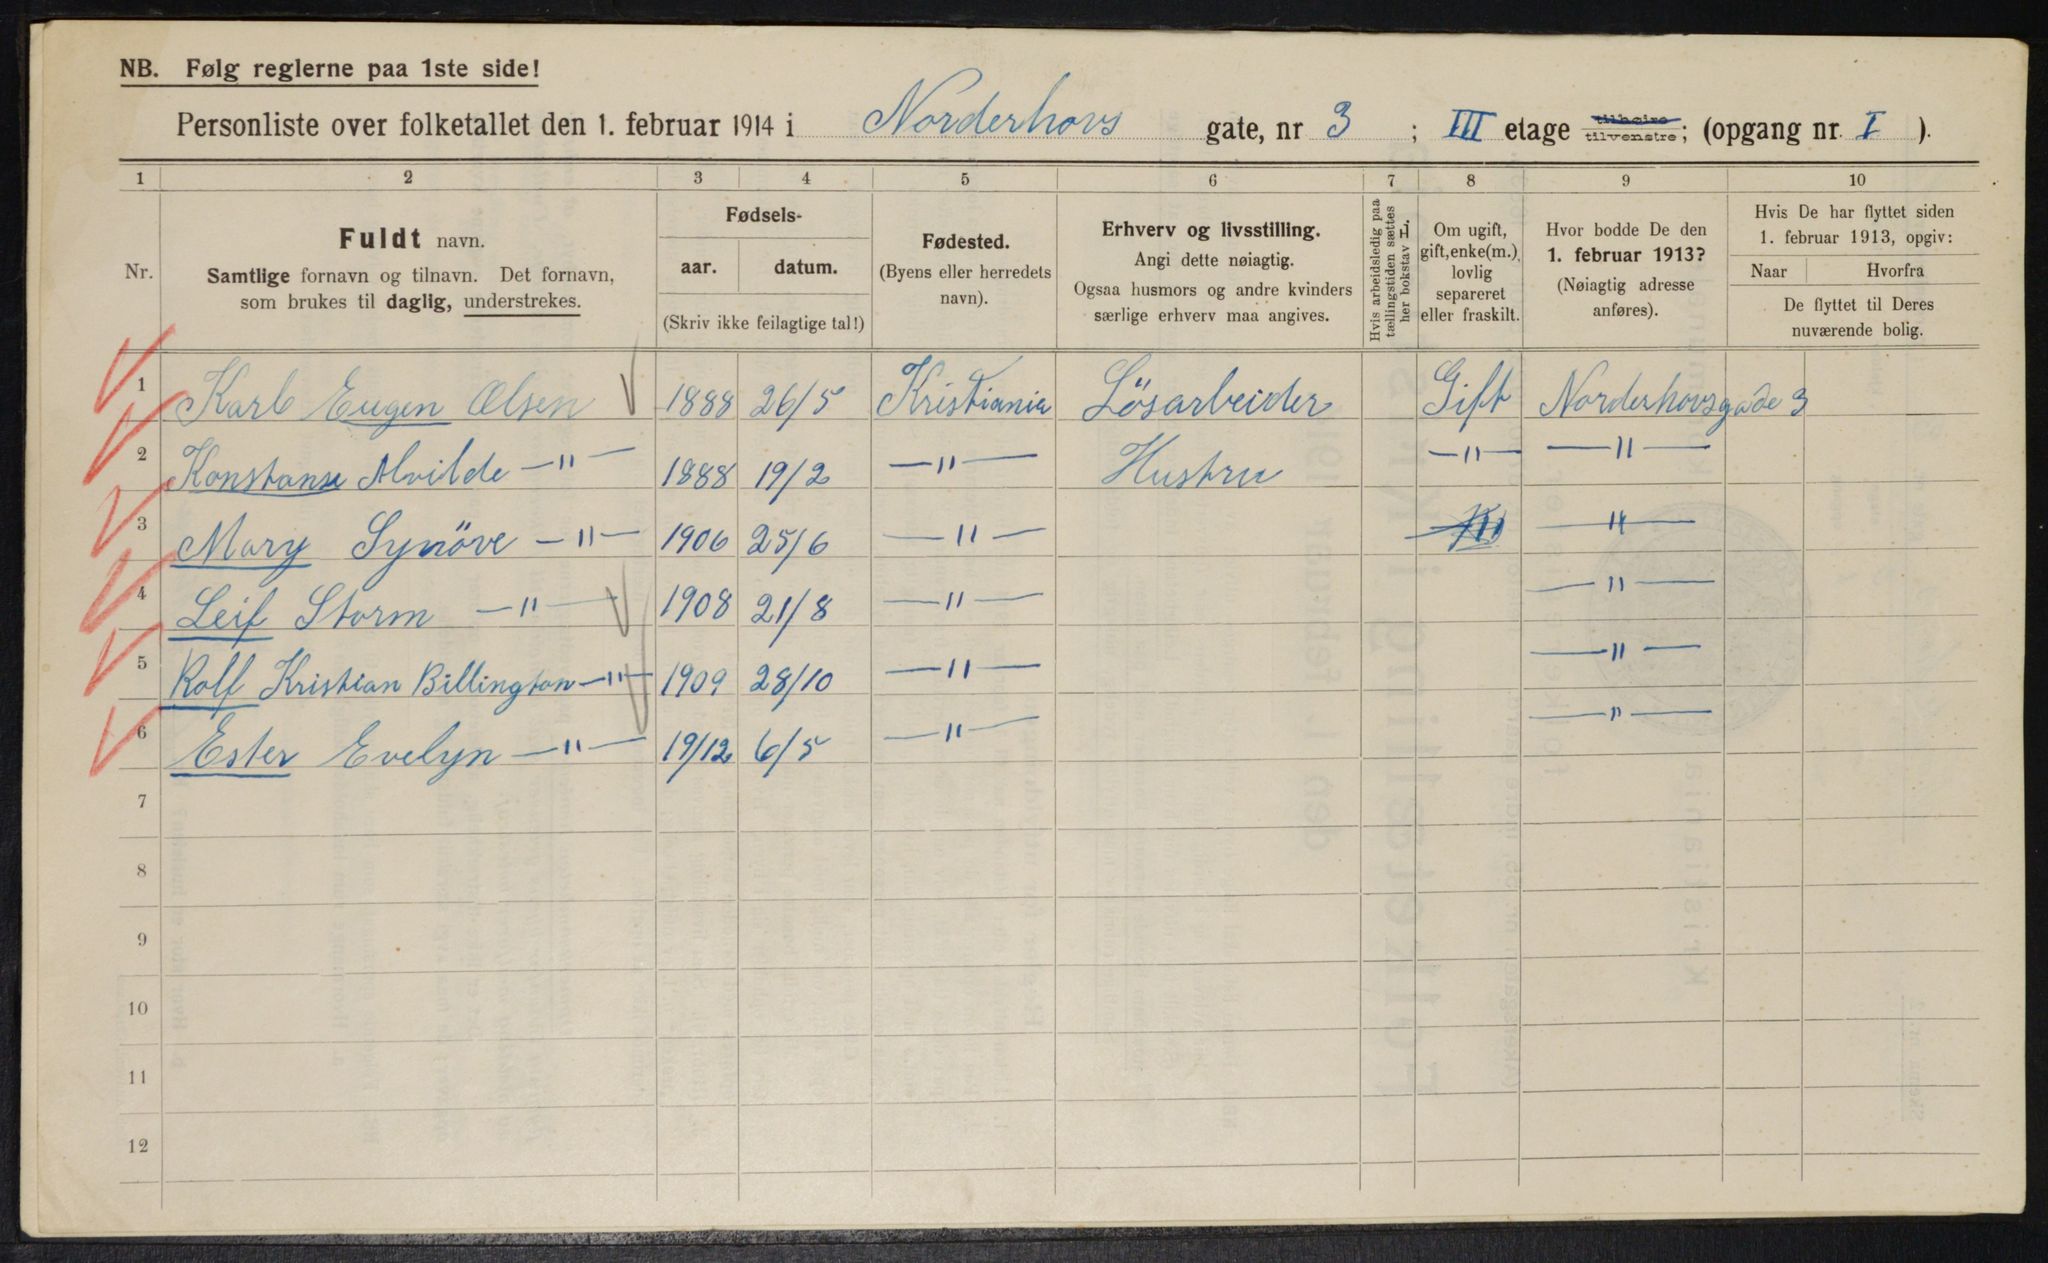 NB. Følg reglerne paa 1ste side!
Personliste over folketallet den 1. februar 1914 i Norderhovs gate, nr 3; III etage tilhøire tilvenstre; (opgang nr. I).
1 2 3 4 5 6 7 8 9 10
Nr.
Fuldt navn.
Samtlige fornavn og tilnavn. Det fornavn,
som brukes til daglig, understrekes.
Fødsels-
aar. datum.
(Skriv ikke feilagtige tal!)
Fødested.
(Byens eller herredets
navn).
Erhverv og livsstilling.
Angi dette nøiagtig.
Ogsaa husmors og andre kvinders
særlige erhverv maa angives.
Hvis arbeidsledig paa
tællingstiden sættes
her bokstav L.
Om ugift,
gift, enke(m.),
lovlig
separeret
eller fraskilt.
Hvor bodde De den
1. februar 1913?
(Nøiagtig adresse
anføres).
Hvis De har flyttet siden
1. februar 1913, opgiv:
Naar Hvorfra
De flyttet til Deres
nuværende bolig.
1 Karl Eugen Olsen 1888 26/5 Kristiania Lösarbeider Gift Norderhovsgade 3
2 Konstanse Alvilde —"— 1888 19/2 —"— Hustru —"— —"—
3 Mary Synöve —"— 1906 25/6 —"— —"—
4 Leif Storm —"— 1908 21/8 —"— —"—
5 Rolf Kristian Billington —"— 1909 28/10 —"— —"—
6 Ester Evelyn —"— 19/12 6/5 —"— —"—
7
8
9
10
11
12